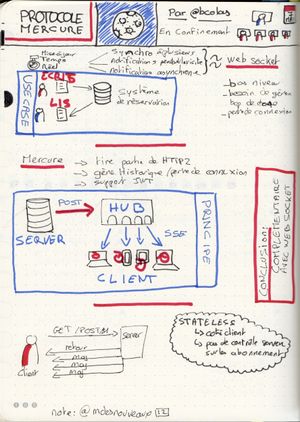 PROTOCOLE
MERCURE
Par @bcolas
En Confinement
Mise à jour
Temps
Réel
notification asynchrone
web socket
bas niveau
besoin de gérer
perte de connexion
USE CASE
ECRIS
LIS
Système
de réservation
Mercure → tire partie de HTTP2
→ gère historique / perte de connexion
→ support JWT
SERVER
POST
HUB
SSE
CLIENT
PRINCIPE
CONCLUSION:
COMPLEMENTAIRE
AVEC WEB SOCKET
GET /POST
Server
retour
Maj
Maj
Maj
Client
STATELESS
↳ coté client
↳ pas de contrôle serveur
sur les abonnement
note: